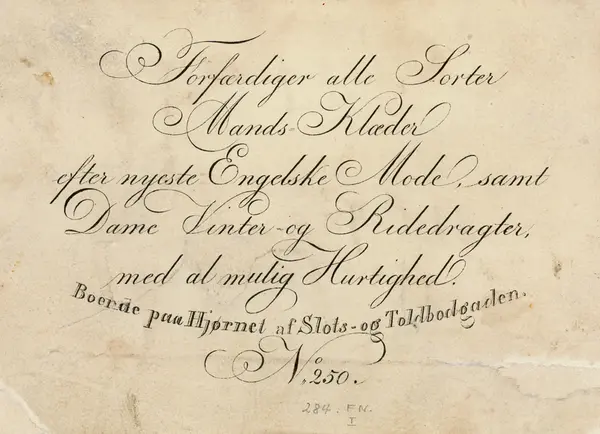 Forfærdiger alle Sorter
Mands-Klæder
efter nyeste Engelske Mode, samt
Dame Vinter-og Ridedragter,
med al mulig Hurtighed.
Boende paa Hjørnet af Slots-og Toldbodgaden.
No. 250.
284. FN.
I